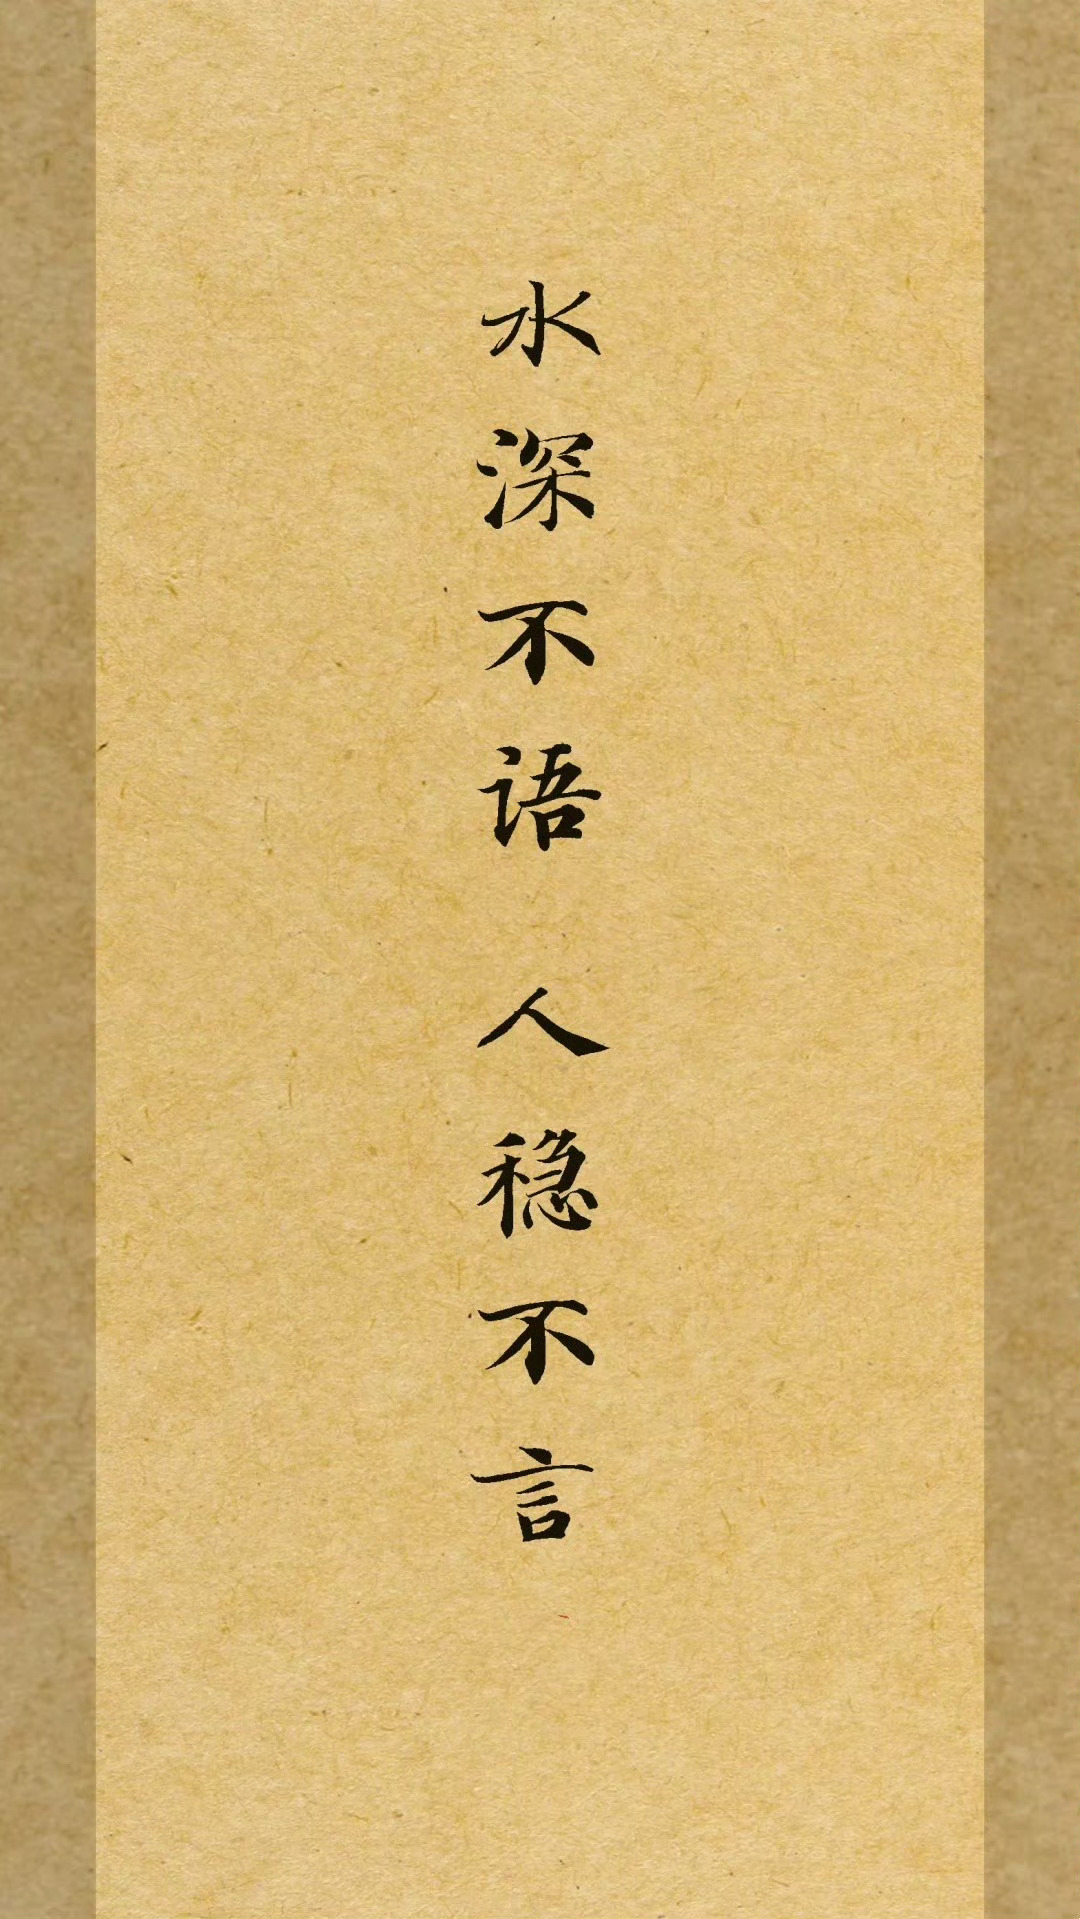 水深不语 人稳不言